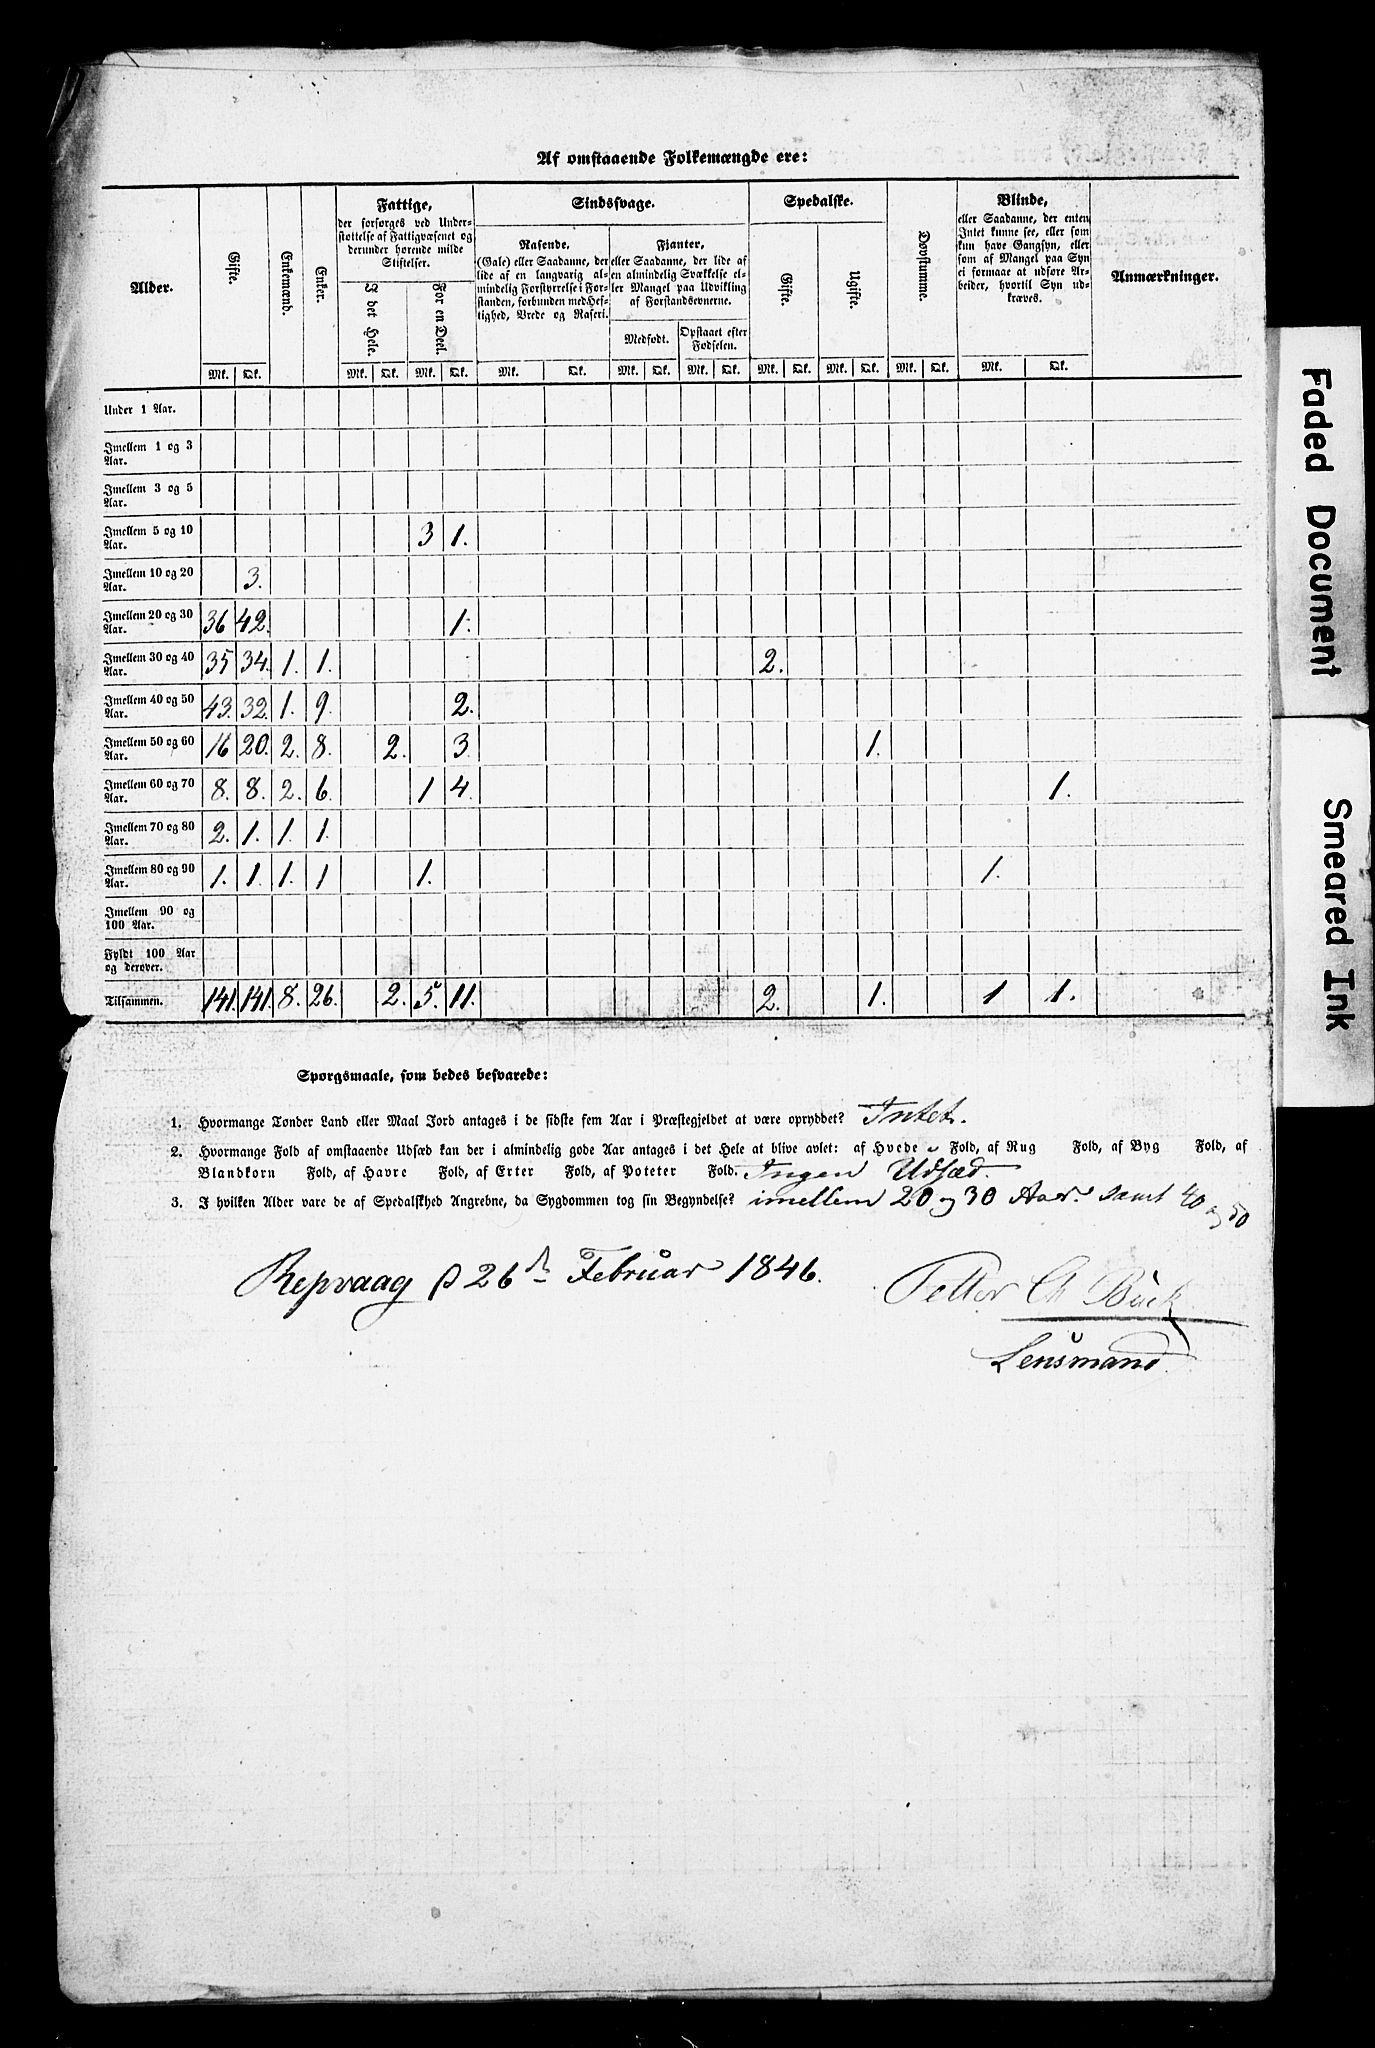 Af omstaaende Folkemængde ere:
Alder.
Gifte.
Enkemænd.
Enker.
Fattige,
der forsørges ved Under-
støttelse af Fattigvæsenet og
derunder hørende milde
Stiftelser.
I det Hele.
For en Deel.
Sindssvage.
Rasende,
(Gale) eller Saadanne, der
lide af en langvarig al-
mindelig Forstyrrelse i For-
standen, forbunden med Hef-
tighed, Vrede og Raseri.
Fjanter,
eller Saadanne, der lide af
en almindelig Svækkelse el-
ler Mangel paa Udvikling
af Forstandsevnerne.
Medfødt.
Opstaaet efter
Fødselen.
Spedalske.
Gifte.
Ugifte.
Døvstumme.
Blinde,
eller Saadanne, der enten
Intet kunne see, eller som
kun have Gangsyn, eller
som af Mangel paa Syn
ei formaae at udføre Ar-
beider, hvortil Syn ud-
kræves.
Anmærkninger.
Mk. Qk. Mk. Qk. Mk. Qk. Mk. Qk. Mk. Qk. Mk. Qk. Mk. Qk. Mk. Qk. Mk. Qk. Mk. Qk.
Under 1 Aar.
Imellem 1 og 3
Aar.
Imellem 3 og 5
Aar.
Imellem 5 og 10 3 1.
Aar.
Imellem 10 og 20 3.
Aar.
Imellem 20 og 30 36 42. 1.
Aar.
Imellem 30 og 40 35 34. 1. 1. 2.
Aar.
Imellem 40 og 50 43. 32. 1. 9. 2.
Aar.
Imellem 50 og 60 16 20. 2. 8. 2. 3. 1.
Aar.
Imellem 60 og 70 8. 8. 2. 6. 1 4. 1.
Aar.
Imellem 70 og 80 2. 1. 1. 1.
Aar.
Imellem 80 og 90 1. 1. 1. 1 1. 1.
Aar.
Imellem 90 og
100 Aar.
Fyldt 100 Aar
og derover.
Tilsammen. 141. 141. 8. 26. 2. 5. 11. 2. 1. 1 1.
Spørgsmaale, som bedes besvarede:
1. Hvormange Tønder Land eller Maal Jord antages i de sidste fem Aar i Præstegjeldet at være opryddet? Intet.
2. Hvormange Fold af omstaaende Udsæd kan der i almindelig gode Aar antages i det Hele at blive avlet: af Hvede Fold, af Rug Fold, af Byg Fold, af
Blandkorn Fold, af Havre Fold, af Erter Fold, af Poteter Fold. Ingen Udsæd.
3. I hvilken Alder vare de af Spedalskhed Angrebne, da Sygdommen tog sin Begyndelse? imellem 20 og 30 Aar. samt 40
og 50
Repvaag 26 Februar 1846.
Petter Ch Buck
Lensmand.
Faded Document
Smeared Ink